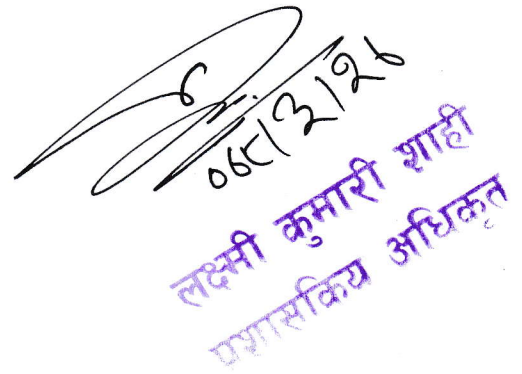 ०६८/३/२६
लक्ष्मी कुमारी शाही
प्रशासकिय अधिकृत